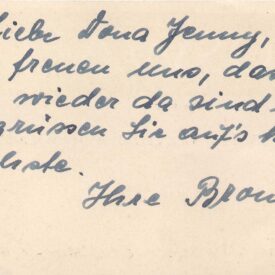 Liebe Dona Jenny,
freuen uns, da
wieder da sind
grüssen Sie auf's h
chste.
Ihre Brau